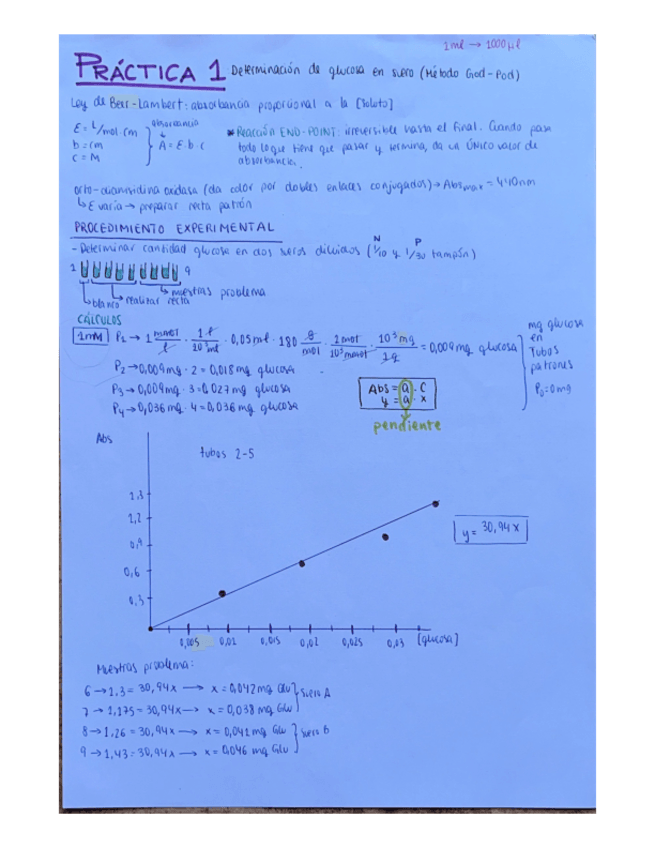 1ml → 1000µl
PRÁCTICA 1 Determinación de glucosa en suero (Método God-Pod)
Ley de Berr-Lambert: absorbancia proporcional a la [soluto]
Ɛ = L/mol·cm
b = cm
c = M
absorbancia
A = Ɛ·b·c
* Reacción END-POINT: irreversible hasta el final. Cuando pasa
todo lo que tiene que pasar y termina, da un ÚNICO valor de
absorbancia.
orto-dianisidina oxidasa (da color por dobles enlaces conjugados) → Abs max = 440nm
↳ Ɛ varía → preparar recta patrón
PROCEDIMIENTO EXPERIMENTAL
N P
- Determinar cantidad glucosa en dos sueros diluidos (1/10 y 1/30 tampón)
1 9
↳ blanco ↳ realizar recta ↳ muestras problema
CÁLCULOS
1mM P1 → 1 mmol/l · 1 l/10³ ml · 0,05 ml · 180 g/mol · 1 mol/10³ mmol · 10³ mg/1g = 0,009 mg glucosa
P2 → 0,009mg · 2 = 0,018 mg glucosa
P3 → 0,009mg · 3 = 0,027 mg glucosa
P4 → 0,036 mg · 4 = 0,036 mg glucosa
mg glucosa
en
tubos
patrones
P0 = 0mg
Abs = a · C
y = a · x
pendiente
Abs
tubos 2-5
1,3
1,2
0,9
0,6
0,3
y = 30,94x
0,005 0,01 0,015 0,02 0,025 0,03 [glucosa]
Muestras problema:
6 → 1,3 = 30,94x → x = 0,042 mg Glu
7 → 1,175 = 30,94x → x = 0,038 mg Glu
suero A
8 → 1,26 = 30,94x → x = 0,041 mg Glu
9 → 1,43 = 30,94x → x = 0,046 mg Glu
suero B